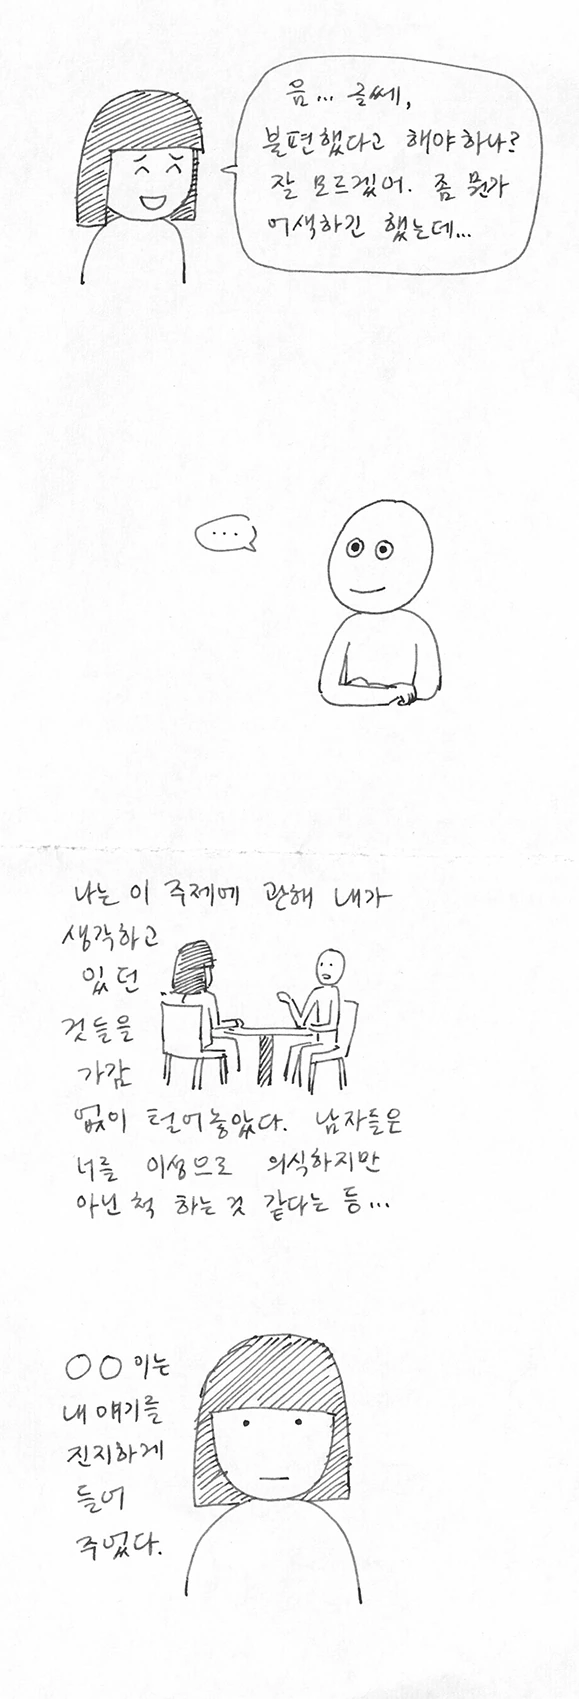 음... 글쎄,
불편했다고 해야하나?
잘 모르겠어. 좀 뭔가
어색하긴 했는데...
...
나는 이 주제에 관해 내가
생각하고
있던
것들을
가감
없이 털어놓았다. 남자들은
너를 이성으로 의식하지만
아닌 척 하는 것 같다는 등...
○○이는
내 얘기를
진지하게
들어
주었다.